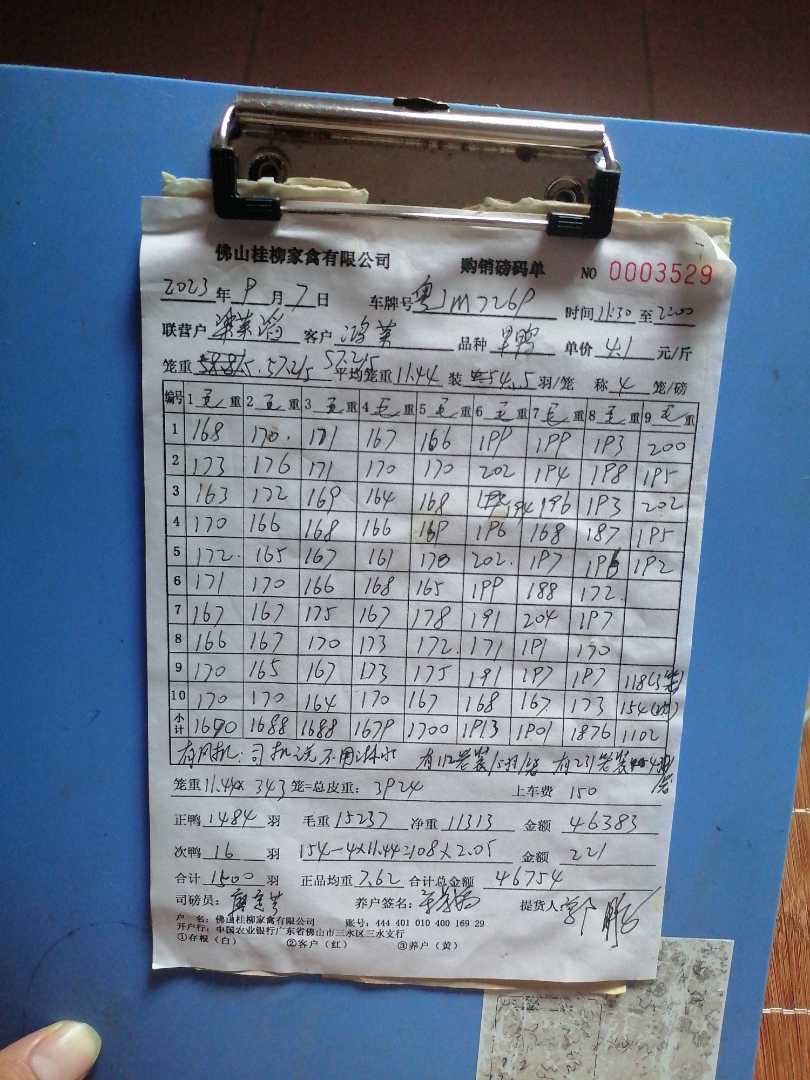 佛山桂柳家禽有限公司 购销磅码单 NO 0003529
2023 年 9 月 7 日 车牌号 粤JM7269 时间 至 22:00
联营户 客户 鸿 品种 单价 4.1 元/斤
笼重 57.2/5 57.2/5 平均笼重 11.44 装 羽/笼 称 4 笼/磅
编号 1 毛 重 2 毛 重 3 毛 重 4 毛 重 5 毛 重 6 毛 重 7 毛 重 8 毛 重 9 毛 重
1 168 170 171 167 166 199 199 193 200
2 173 176 171 170 170 202 194 198 195
3 163 172 169 164 168 194 196 193 202
4 170 166 168 166 169 196 168 187 195
5 172 165 167 161 170 202 197 192
6 171 170 166 168 165 199 188 172
7 167 167 175 167 178 191 204 197
8 166 167 170 173 172 171 191 170
9 170 165 167 173 175 191 197 197 118(3笼)
10 170 170 164 170 167 168 167 173 154
小计 1690 1688 1688 1679 1700 1913 1901 1876 1102
有风机:司机说不用淋水 有112笼装 有231笼装
笼重 11.44× 343 笼=总皮重: 3924 上车费 150
正鸭 1484 羽 毛重 15237 净重 11313 金额 46383
次鸭 16 羽 154-4×11.44=108×2.05 金额 221
合计 1500 羽 正品均重 7.62 合计总金额 46754
司磅员: 养户签名: 提货人:
户 名: 佛山桂柳家禽有限公司 账号: 444 401 010 400 169 29
开户行: 中国农业银行广东省佛山市三水区三水支行
①存根(白) ②客户(红) ③养户(黄)